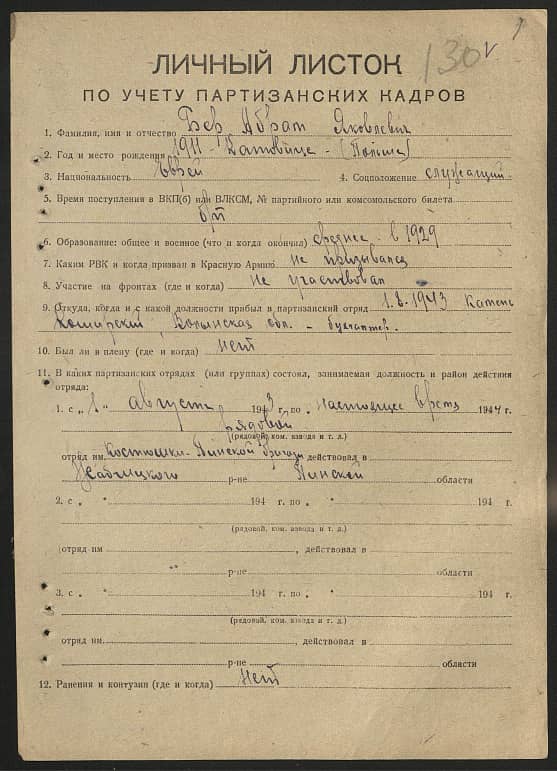 130 v
ЛИЧНЫЙ ЛИСТОК
ПО УЧЕТУ ПАРТИЗАНСКИХ КАДРОВ
1. Фамилия, имя и отчество Бер Абрам Яковлевич
2. Год и место рождения 1911 - Катовице - (Польша)
3. Национальность еврей 4. Соцположение служащий
5. Время поступления в ВКП(б) или ВЛКСМ, № партийного или комсомольского билета
б/п
6. Образование: общее и военное (что и когда окончил) среднее в 1929
7. Каким РВК и когда призван в Красную Армию не призывался
8. Участие на фронтах (где и когда) Не участвовал
9. Откуда, когда и с какой должности прибыл в партизанский отряд 1.8.1943 Камень
Кошырский, Волынская обл. - бухгалтер.
10. Был ли в плену (где и когда) Нет
11. В каких партизанских отрядах (или группах) состоял, занимаемая должность и район действия
отряда:
1. с „1“ августа 1943 г. по настоящее время 1944 г.
рядовой
(рядовой, ком. взвода и т. д.)
отряд им Костюшки-Пинской бригады действовал в
р-не Пинской области
2. с „ “ 194 г. по „ “ 194 г.
(рядовой, ком. взвода и т. д.)
отряд им , действовал в
р-не области
3. с „ “ 194 г. по „ “ 194 г.
(рядовой, ком. взвода и т. д.)
отряд им , действовал в
р-не области
12. Ранения и контузии (где и когда) Нет